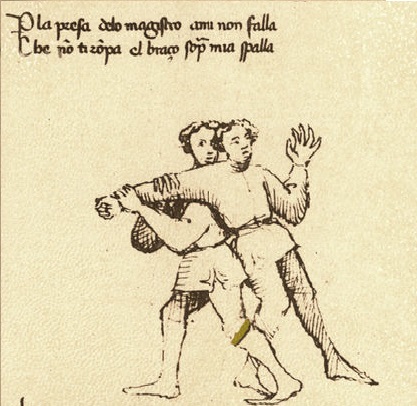 P la presa delo magistro ami non falla
Che nō ti rōpa el braço sop̄ mia spalla